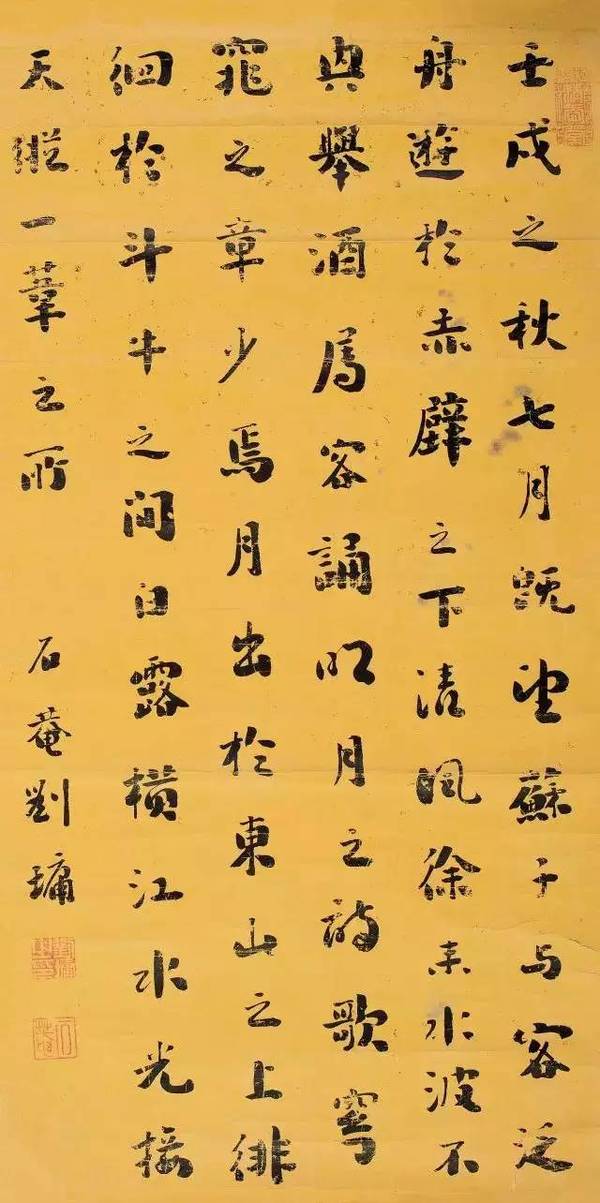 壬戌之秋七月既望蘇子与客泛
舟遊於赤壁之下清風徐来水波不
興舉酒属客誦明月之詩歌窈
窕之章少焉月出於東山之上徘
徊於斗牛之間白露横江水光接
天縱一葦之所
石菴劉墉